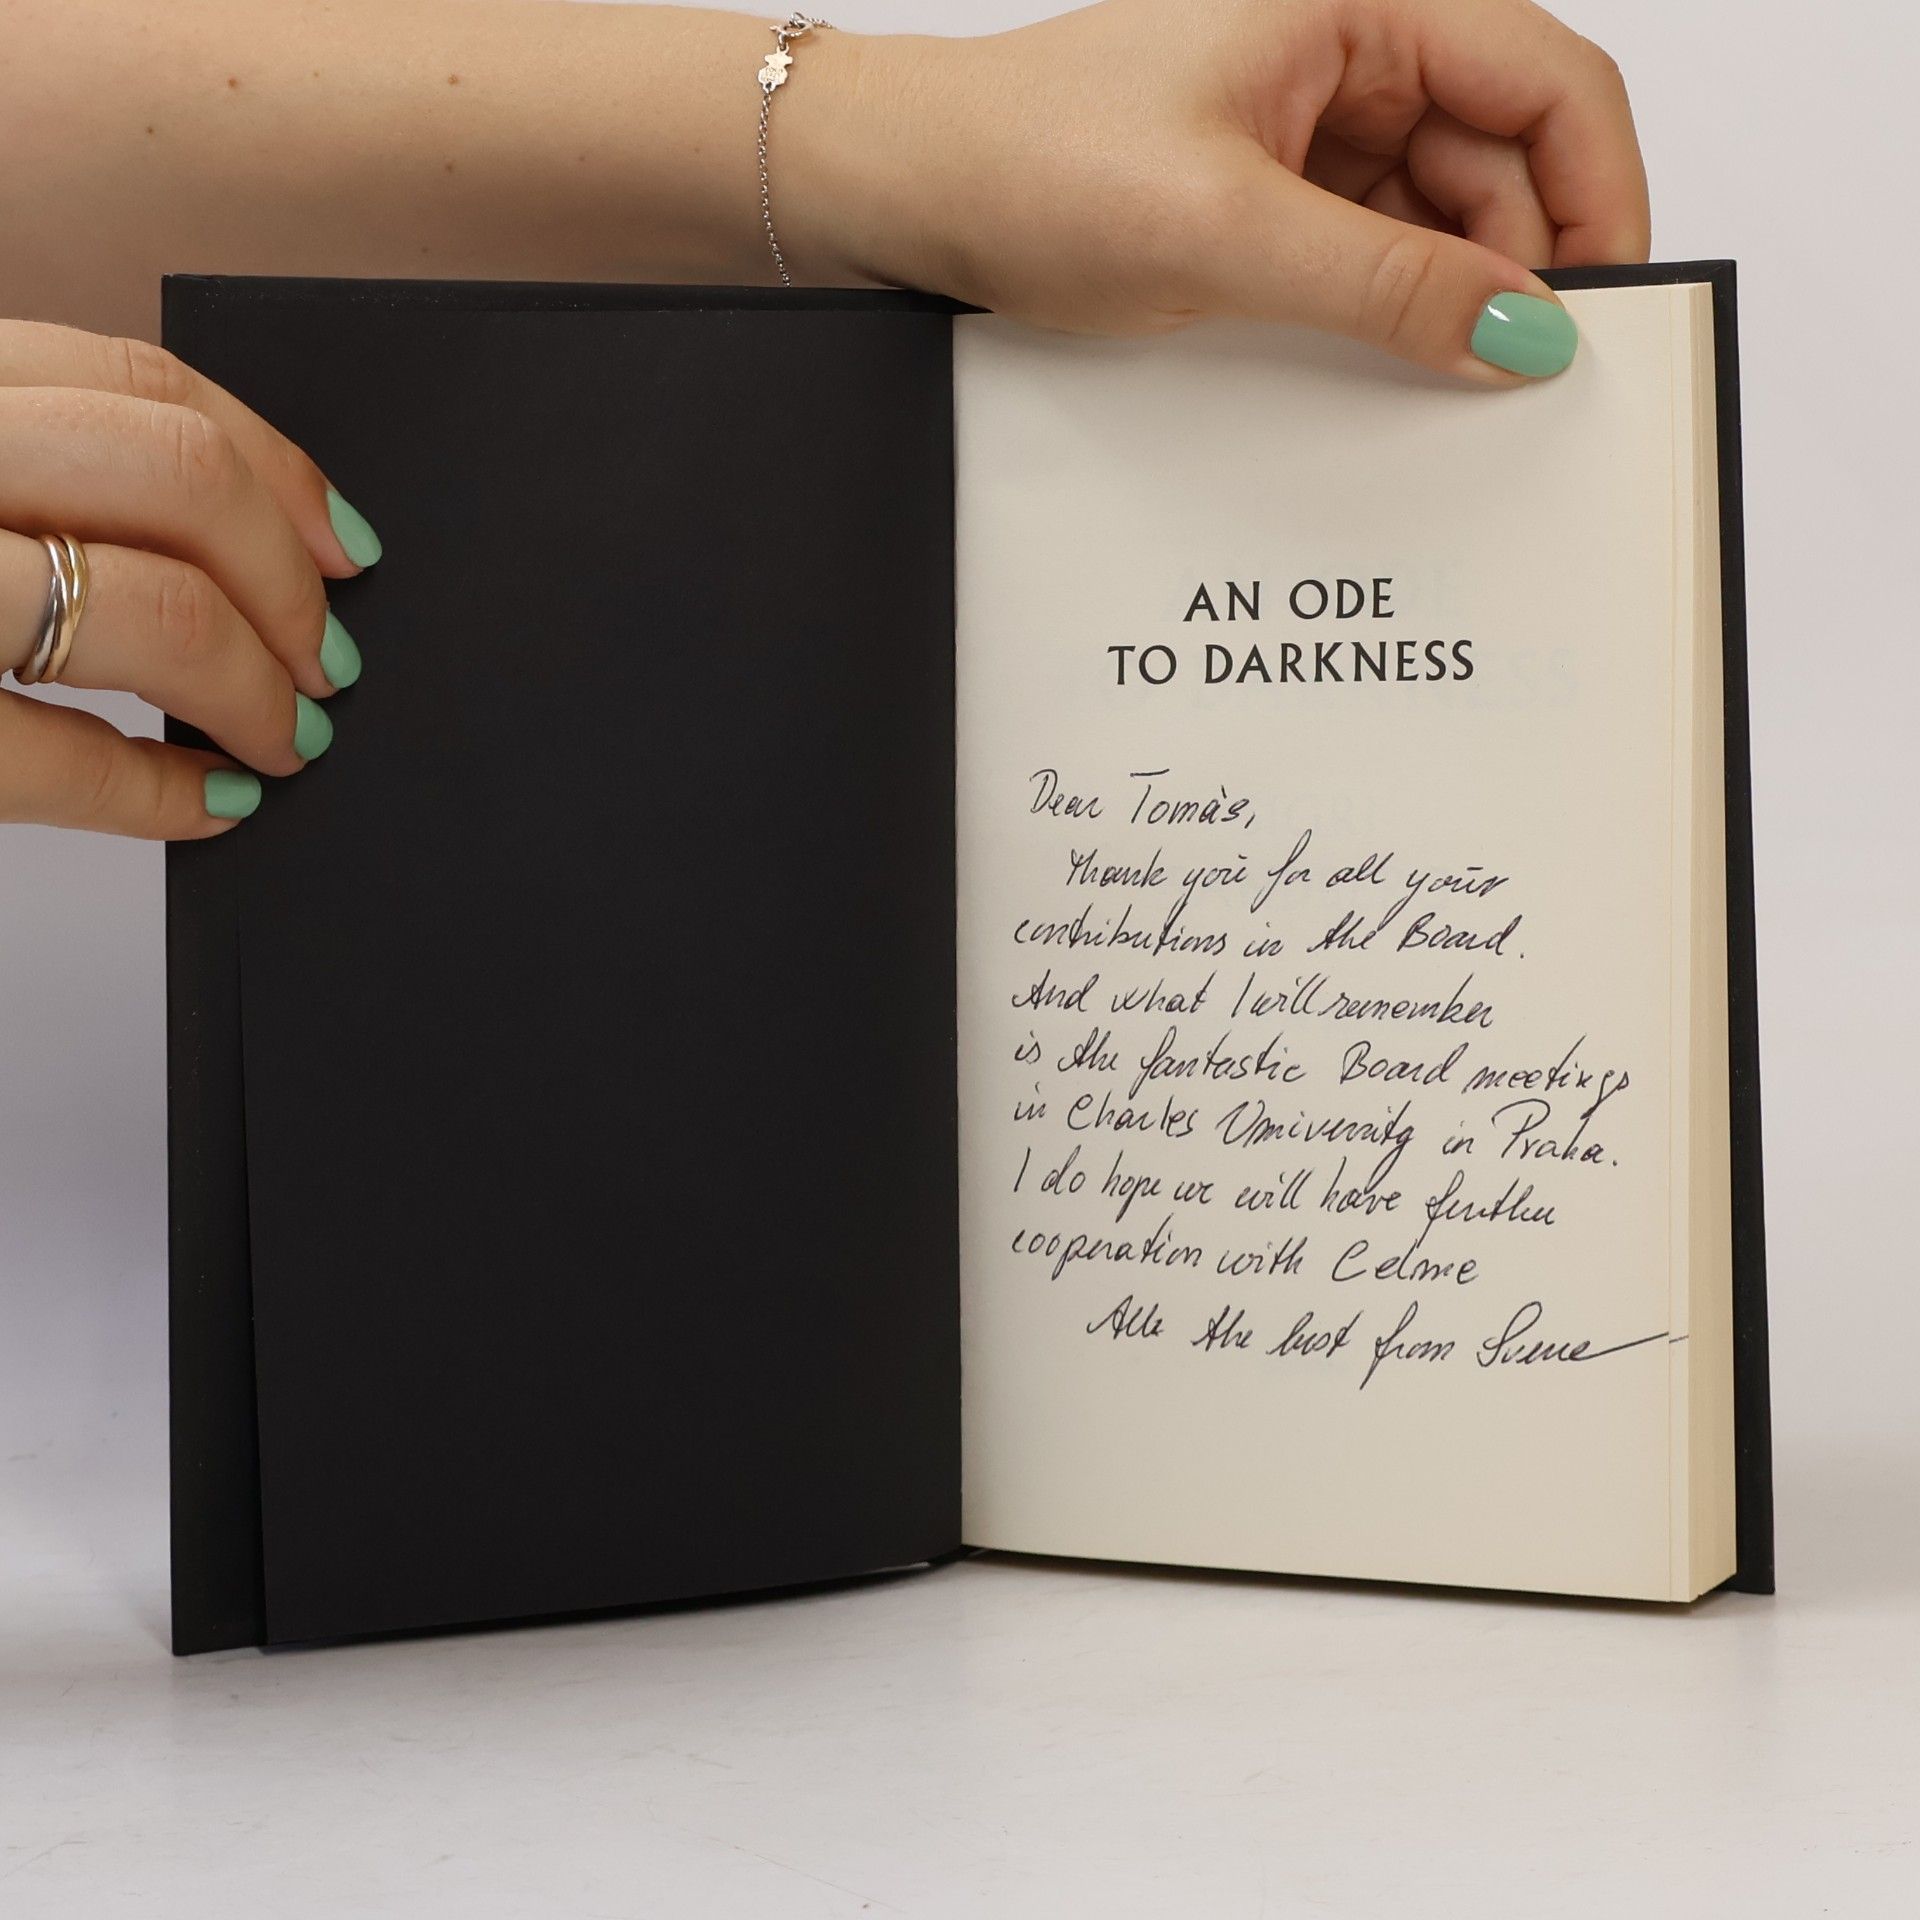 AN ODE
TO DARKNESS
Dear Tomàs,
Thank you for all your
contributions in the Board.
And what I will remember
is the fantastic Board meetings
in Charles University in Praha.
I do hope we will have further
cooperation with Celme
the best from